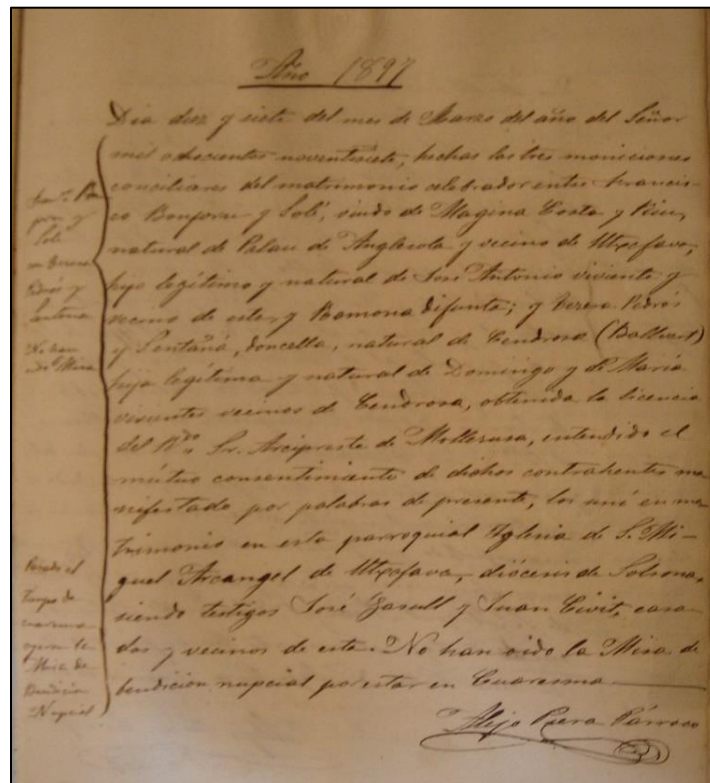 Año 1897
Dia diez y siete del mes de Marzo del año del Señor
mil ochocientos noventisiete, hechas las tres moniciones
conciliares del matrimonio celebrador entre Francis-
co Bonjorn y Solé, viudo de Magina Costa y
natural de Palau de Anglesola y vecino de Utxafava,
hijo legítimo y natural de José Antonio viviente y
vecino de esta, y Ramona difunta; y Teresa Pedrós
y Santañá, doncella, natural de Cendrosa (Ballvert)
hija legítima y natural de Domingo y de María
vivientes vecinos de Cendrosa, obtenida la licencia
del Rdo. Sr. Arcipreste de Mollerusa, entendido el
mútuo consentimiento de dichos contrahentes ma-
nifestado por palabras de presente, los uní en ma-
trimonio en esta parroquial Iglesia de S. Mi-
guel Arcangel de Utxafava, diócesis de Solsona,
siendo testigos José Gasull y Juan Civit, casa-
dos y vecinos de este. No han oido la Misa de
bendicion nupcial por estar en Cuaresma
Alejo Parroco
Solé
con Teresa
Pedrós y
No han
Misa
Pasado el
tiempo de
cuaresma
oyeron la
Misa de
Bendicion
Nupcial